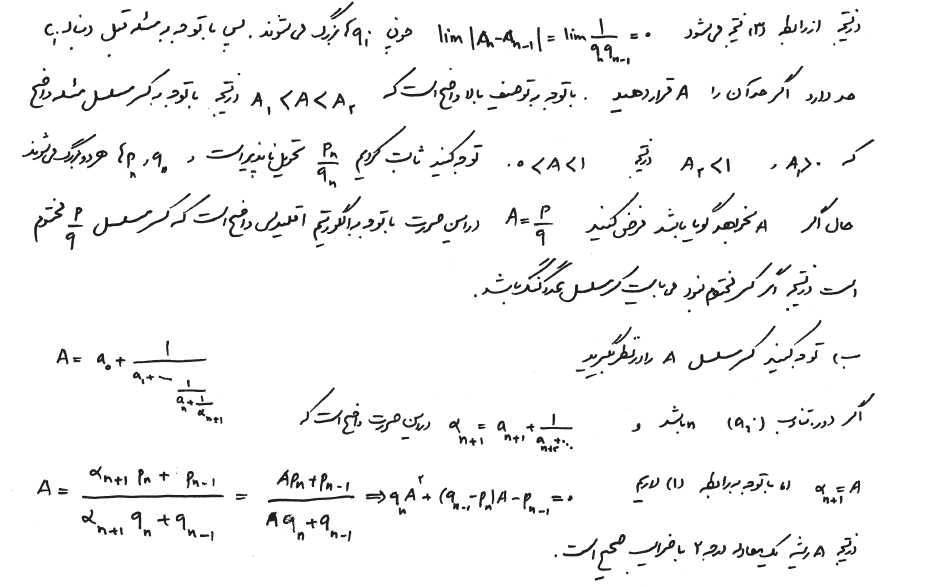 در نتیجه از رابطه (۳) نتیجه می‌شود lim |Aₙ - Aₙ₋₁| = lim 1/(qₙqₙ₋₁) = ۰ چون {qᵢ} بزرگ می‌شوند. پس با توجه به مسئله قبل دنباله
حد دارد اگر حد آن را A قرار دهید. با توجه به توصیف بالا واضح است که A₁ < A < A₂ در نتیجه با توجه به کسر مسلسل مسئله واضح
که A₁ > ۰ و A₂ < 1 در نتیجه ۰ < A < 1. توجه کنید ثابت کردیم pₙ/qₙ تحویل ناپذیر است و {pₙ, qₙ} هر دو بزرگ می‌شوند
حال اگر A بخواهد گویا باشد فرض کنید A = p/q در این صورت با توجه به الگوریتم اقلیدس واضح است که کسر مسلسل p/q مختوم
است در نتیجه اگر کسر مختوم نبود می‌بایست کسر مسلسل عدد گنگ باشد.
ب) توجه کنید کسر مسلسل A را در نظر بگیرید A = a₀ + 1/(a₁ + ... 1/(aₙ + 1/αₙ₊₁))
اگر دوره تناوب (aᵢ) n باشد و αₙ₊₁ = aₙ₊₁ + 1/(aₙ₊₂ + ...) در این صورت واضح است که
αₙ₊₁ = A اما با توجه به رابطه (1) داریم A = (αₙ₊₁pₙ + pₙ₋₁)/(αₙ₊₁qₙ + qₙ₋₁) = (Apₙ + pₙ₋₁)/(Aqₙ + qₙ₋₁) ⇒ qₙA² + (qₙ₋₁ - pₙ)A - pₙ₋₁ = ۰
در نتیجه A ریشه یک معادله درجه ۲ با ضرایب صحیح است.